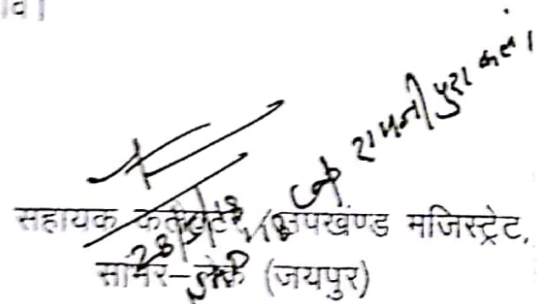 व।
रामजीपुरा कलां।
सहायक कलेक्टर उपखण्ड मजिस्ट्रेट,
सांभर-लेक (जयपुर)